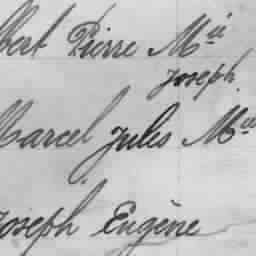 bert Pierre Mie
Joseph
Marcel Jules Mie
Joseph Eugène